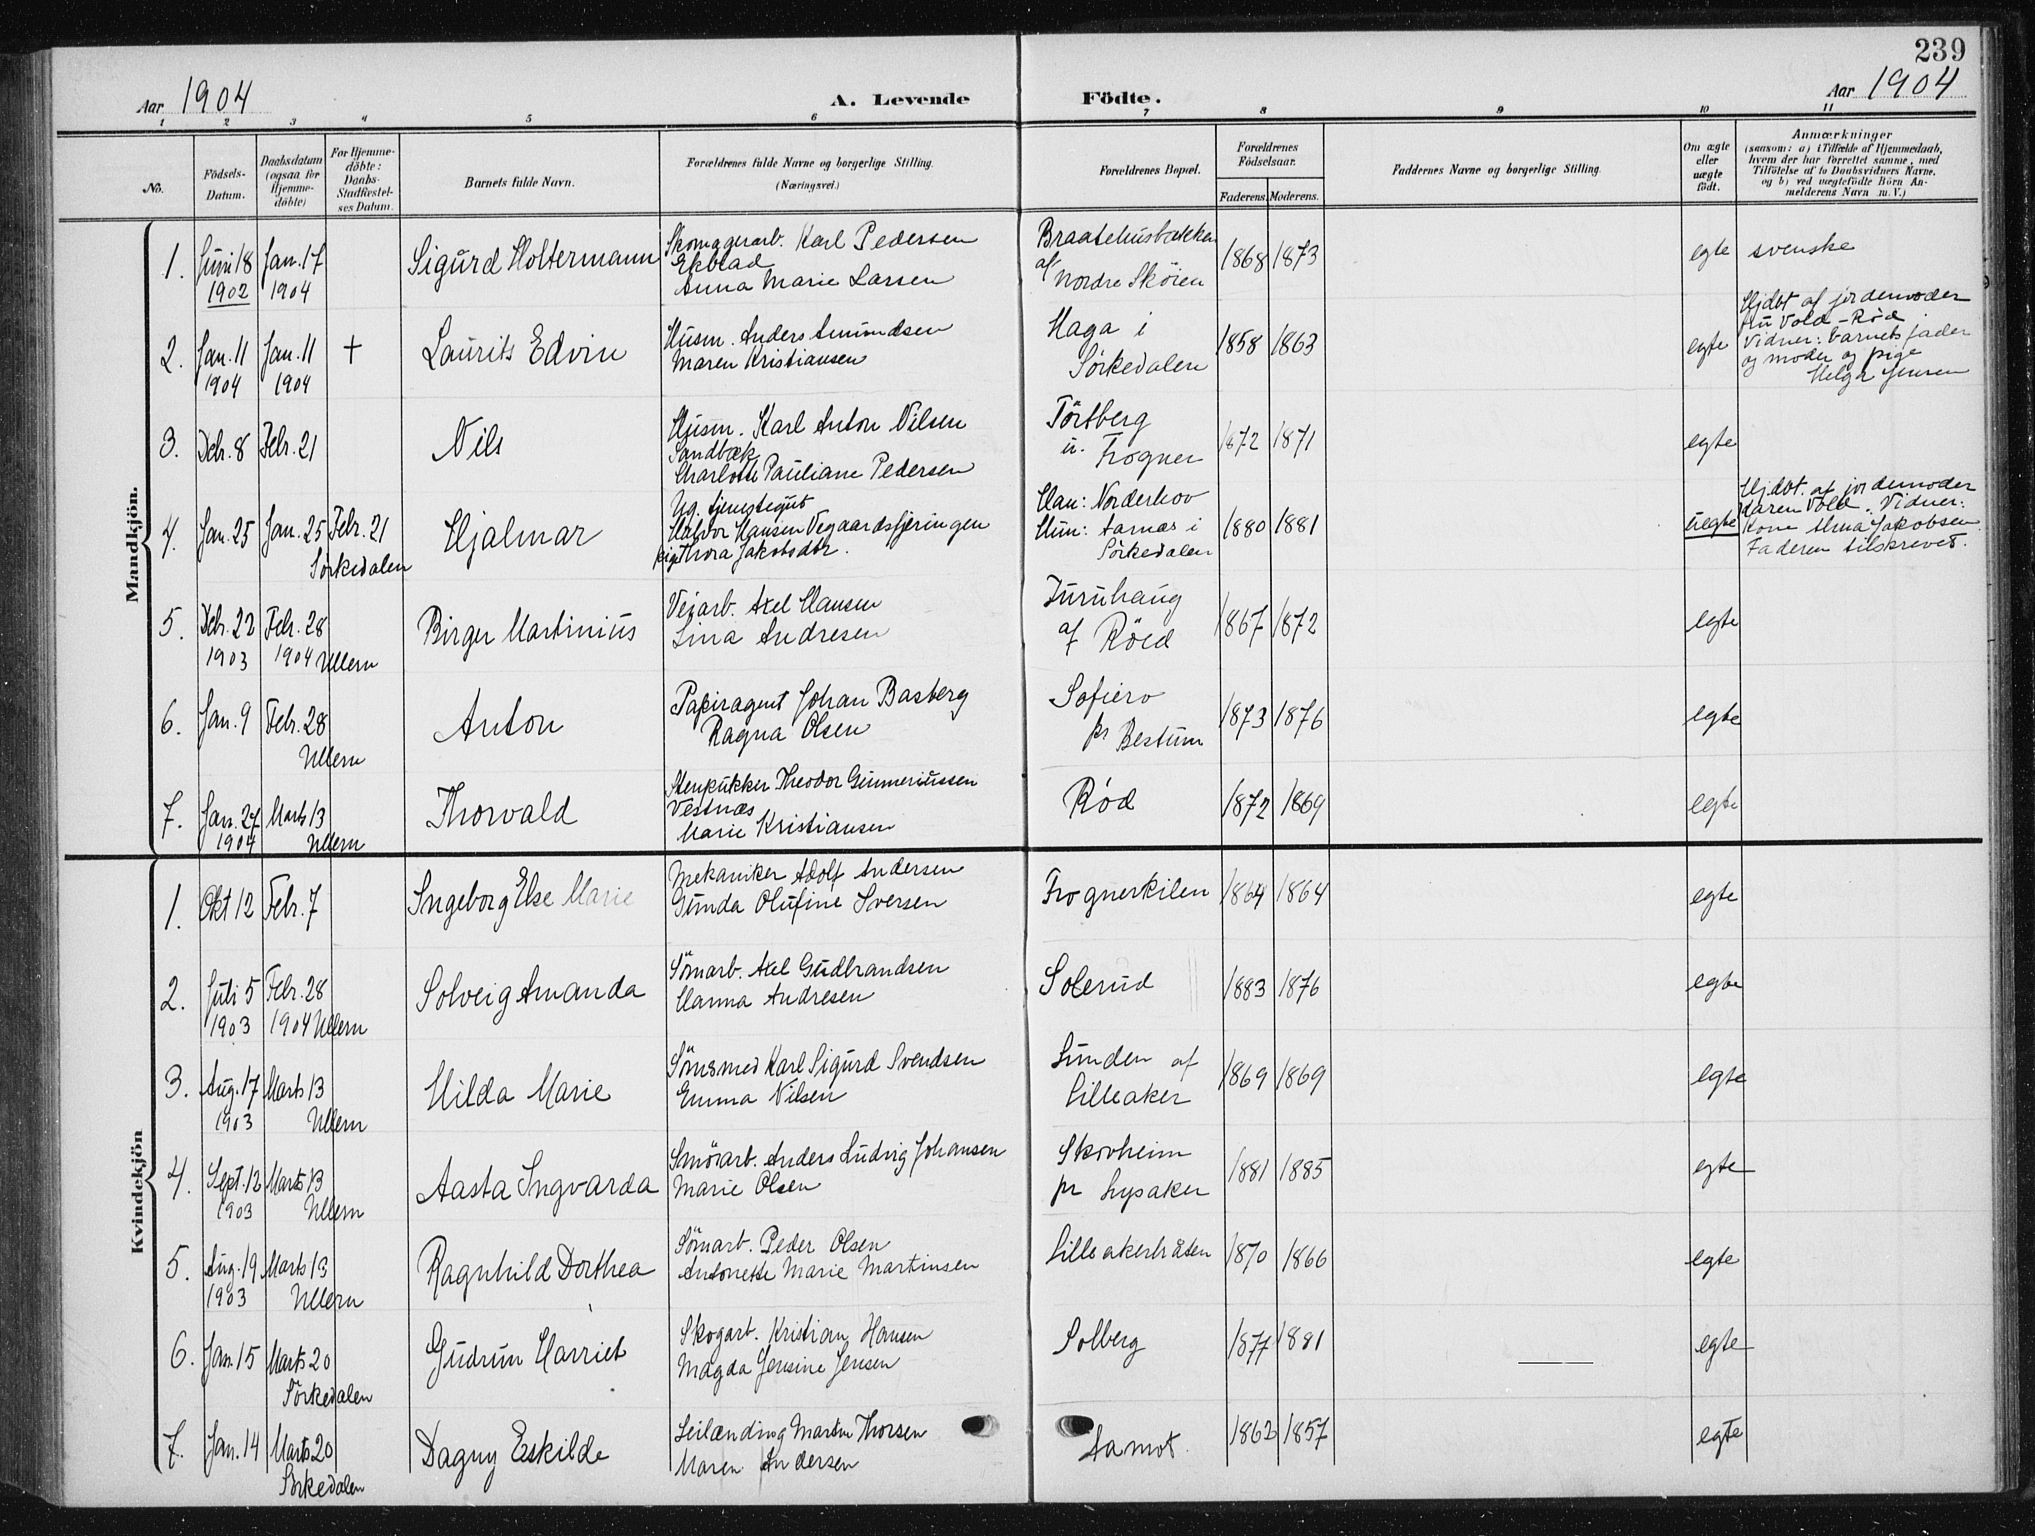 239
Aar 1904 A. Levende Födte. Aar 1904
1 2 3 4 5 6 7 8 9 10 11
No.
Födsels-
Datum.
Daabsdatum
(ogsaa for
Hjemme-
döbte)
For Hjemme-
döbte:
Daabs-
Stadfæstel-
ses Datum.
Barnets fulde Navn.
Forældrenes fulde Navne og borgerlige Stilling.
(Næringsvei.)
Forældrenes Bopæl.
Forældrenes
Födselsaar.
Faderens. Moderens.
Faddernes Navne og borgerlige Stilling.
Om ægte
eller
uægte
födt.
Anmærkninger
(saasom: a) i Tilfælde af Hjemmedaab,
hvem der har forrettet samme, med
Tilföielse af to Daabsvidners Navne,
og b) ved uægtefödte Börn An-
melderens Navn m. V.)
Mandkjön.
1. Juni 18 Jan. 17
1902 1904
Sigurd Holtermann
Skomagerarb. Karl Pedersen
Ekblad
Anna Marie Larsen
Braatehusbakken
af Nordre Sköien
1868 1873 egte svenske
2. Jan. 11 Jan. 11 +
1904 1904
Laurits Edvin
Husm. Anders Amundsen
Maren Kristiansen
Haga i
Sörkedalen
1858 1863 egte
Hjdbt af jordemoder
fru Vold - Röd
Vidner: barnets fader
og moder og pige
Helga Jensen
3. Debr. 8 Febr. 21
Nils
Husm. Karl Anton Nilsen
Sandbæk
Charlotte Pauliane Pedersen
Törtberg
u. Frogner
1872 1871 egte
4. Jan. 25 Jan. 25 Febr. 21
Sörkedalen
Hjalmar
Ug. tjenestegut
Halvor Hansen Vegaardsfjeringen
pige Thora Jakobsdtr.
Han: Norderhov
Hun: Aamot i
Sörkedalen
1880 1881 uegte
Hjdbt. af jordemoder
Karen Vold. Vidner:
Kone Alma Jakobsen.
Faderen tilskrevet.
5. Debr. 22 Febr. 28
1903 1904 Ullern
Birger Martinius
Veiarb. Axel Hansen
Lina Andresen
Furuhaug
af Röed
1867 1872 egte
6. Jan. 9 Febr. 28
Ullern
Anton
Papiragent Johan Basberg
Ragna Olsen
Sofiero
pr Bestum
1873 1876 egte
7. Jan. 27 Marts 13
1904 Ullern
Thorvald
Stenpukker Theodor Gunneriussen
Vestnæs
Marie Kristiansen
Röd
1872 1869 egte
Kvindekjön
1. Okt 12 Febr. 7
Ingeborg Else Marie
Mekaniker Adolf Andersen
Gunda Olufine Iversen
Frognerkilen
1864 1864 egte
2. Juli 5 Febr. 28
1903 1904 Ullern
Solveig Amanda
Sömarb. Axel Gudbrandsen
Hanna Andresen
Solerud
1883 1876 egte
3. Aug. 17 Marts 13
1903 Ullern
Hilda Marie
Sömsmed Karl Sigurd Svendsen
Emma Nilsen
Lunden af
Lilleaker
1869 1869 egte
4. Sept. 12 Marts 13
1903 Ullern
Aasta Ingvarda
Smörarb. Anders Ludvig Johansen
Marie Olsen
Skovheim
pr Lysaker
1881 1885 egte
5. Aug. 19 Marts 13
1903 Ullern
Ragnhild Dorthea
Sömarb. Peder Olsen
Antonette Marie Martinsen
Lilleakerbråten
1870 1866 egte
6. Jan. 15 Marts 20
Sörkedalen
Gudrun Harriet
Skogarb. Kristian Hansen
Magda Jensine Jensen
Solberg
1877 1881 egte
7. Jan. 14 Marts 20
Sörkedalen
Dagny Eskilde
Leilænding Martin Thorsen
Maren Andersen
Aamot.
1862 1857 egte